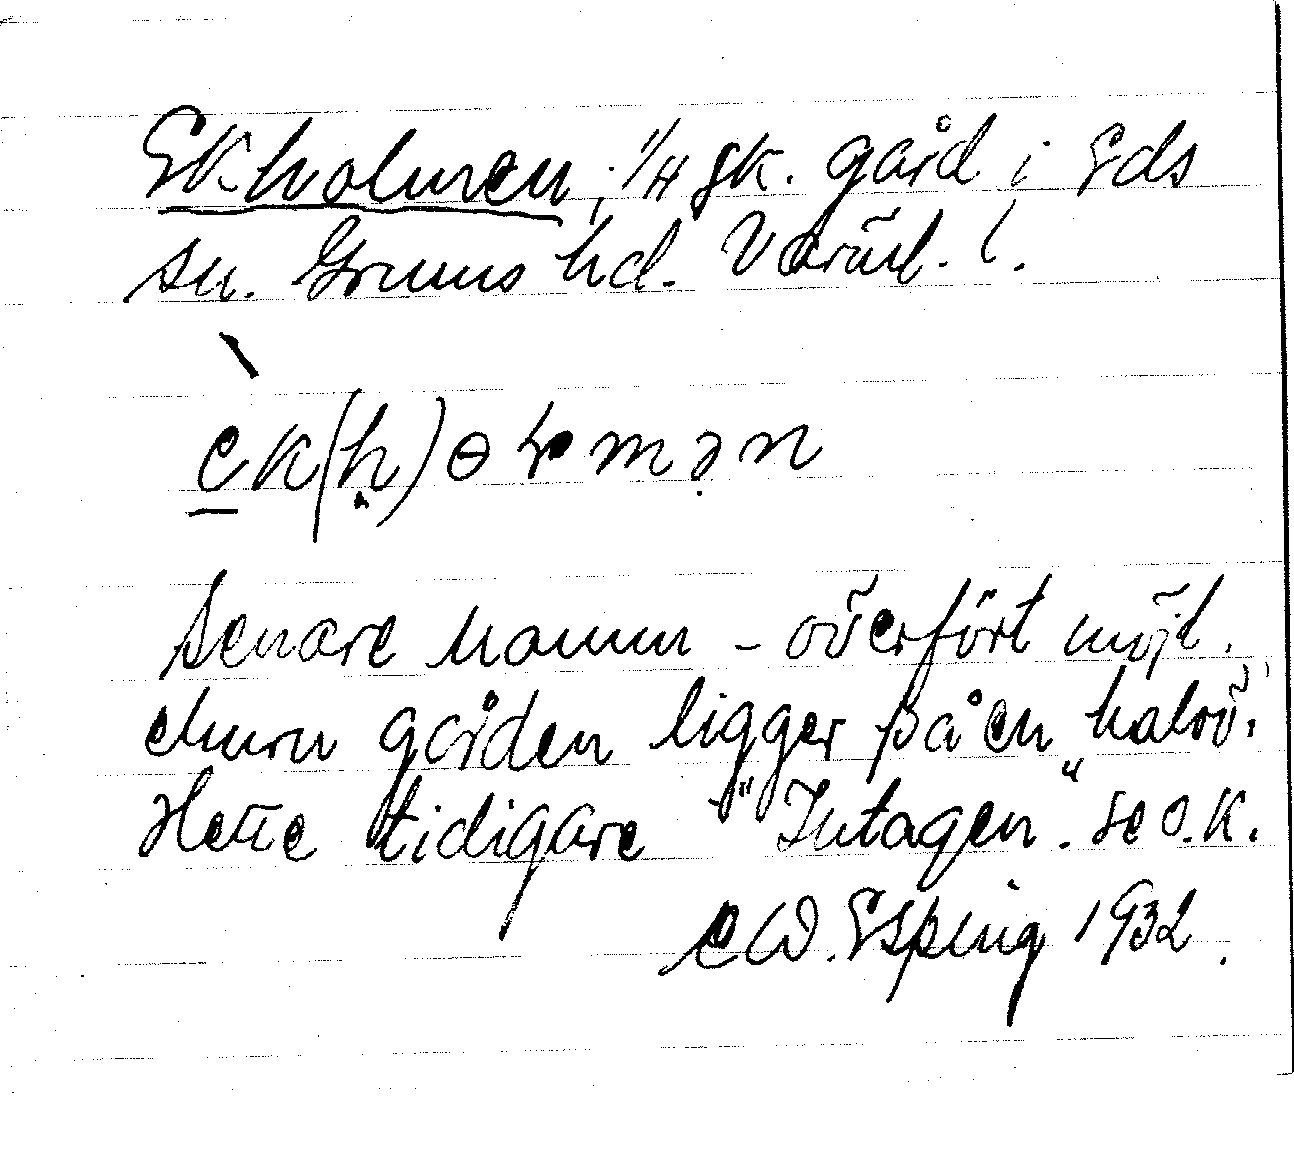 Ekholmen, 1/4 sk. gård i Eds
sn. Grums hd. Värml. l.
èk(h)ɵɽmən
senare namn - överfört möjl.
ehuru gården ligger på en halvö.
Hette tidigare "Intagen". se o. K.
EW. Esping 1932.